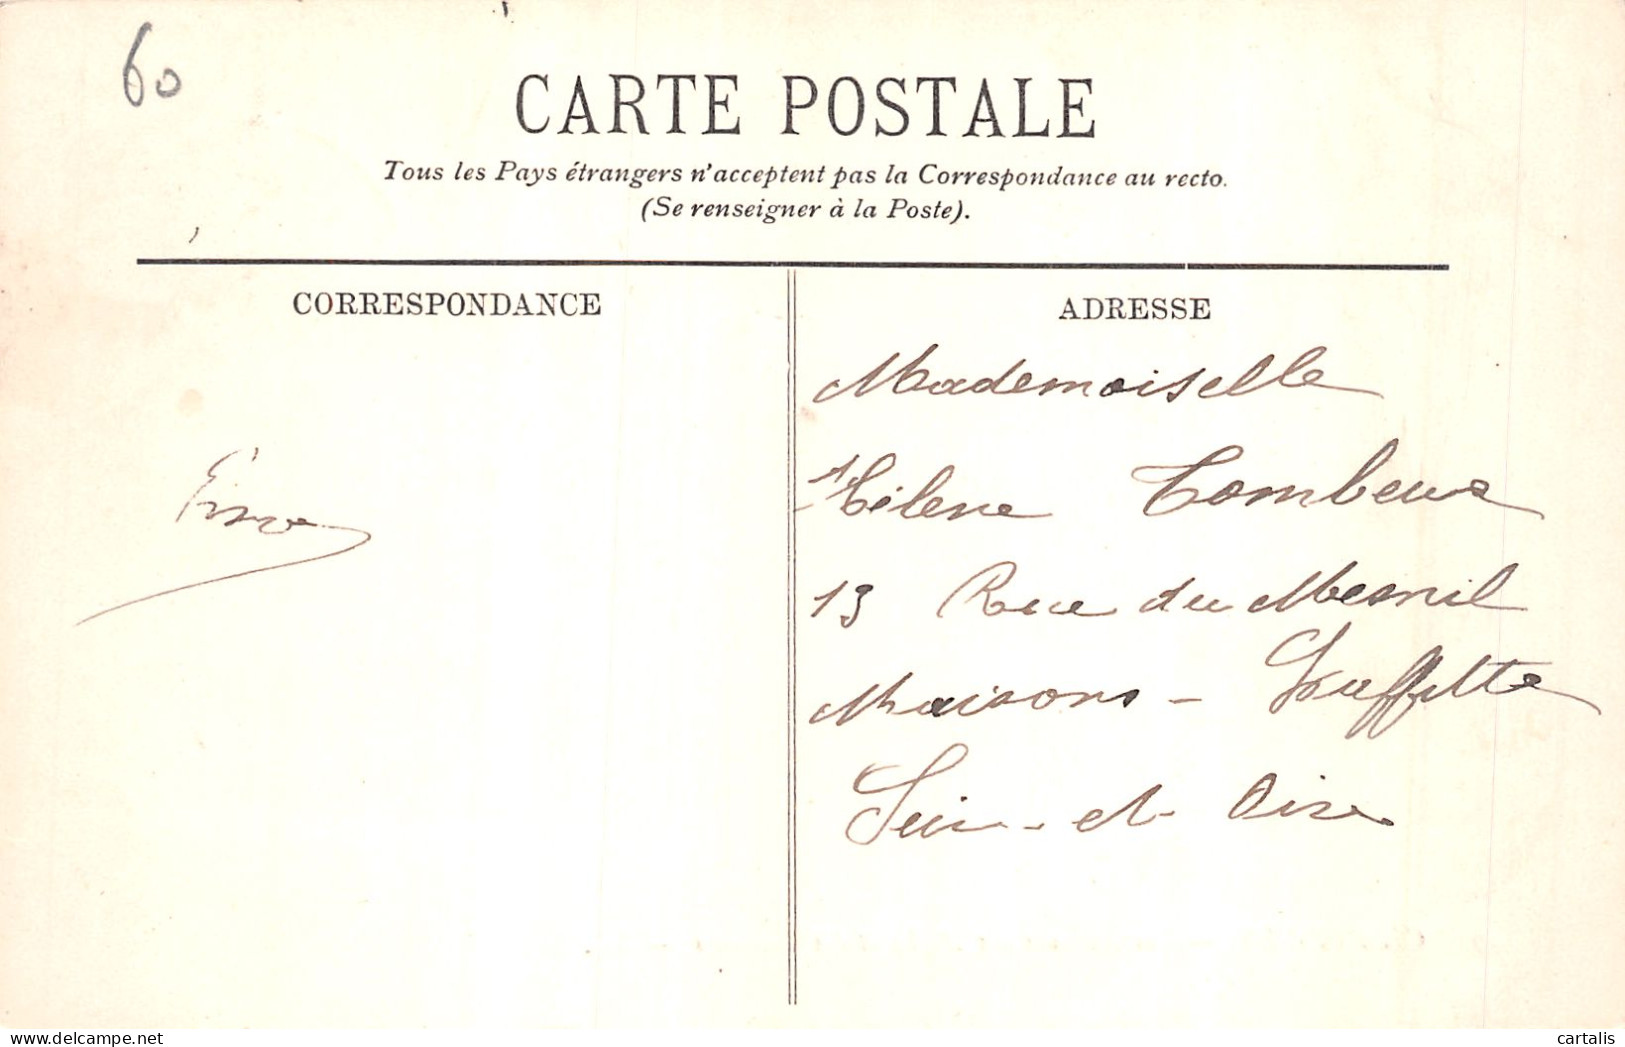 60
CARTE POSTALE
Tous les Pays étrangers n'acceptent pas la Correspondance au recto.
(Se renseigner à la Poste).
CORRESPONDANCE
ADRESSE
Mademoiselle
Hélène
13 Rue du Mesnil
Maisons - Laffitte
Seine - et - Oise
cartalis